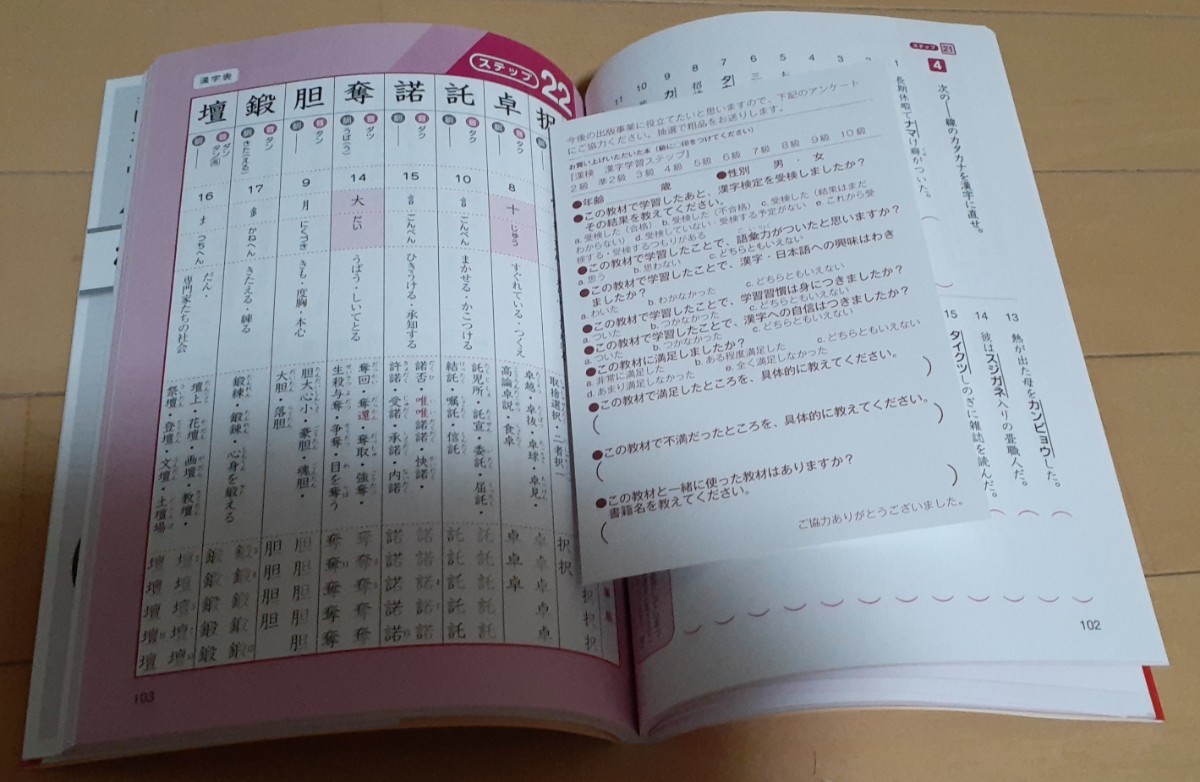 ステップ 21
4
次の―線のカタカナを漢字に直せ。
1 長期休暇でナマけ癖がついた。
13 熱が出た母をカンビョウした。
14 彼はスジガネ入りの畳職人だ。
15 タイクツしのぎに雑誌を読んだ。
102
今後の出版事業に役立てたいと思いますので、下記のアンケート
にご協力ください。抽選で粗品をお送りします。
お買い上げいただいた本(級に○印をつけてください)
[漢検 漢字学習ステップ]
2級 準2級 3級 4級 5級 6級 7級 8級 9級 10級
●年齢 歳 ●性別 男・女
●この教材で学習したあと、漢字検定を受検しましたか?
その結果を教えてください。
a. 受検した(合格) b. 受検した(不合格) c. 受検した(結果はまだ
わからない) d. 受検していない・受検する予定がない e. これから受
検する・受検するつもりがある
●この教材で学習したことで、語彙力がついたと思いますか?
a. 思う b. 思わない c. どちらともいえない
●この教材で学習したことで、漢字・日本語への興味はわき
ましたか?
a. わいた b. わかなかった c. どちらともいえない
●この教材で学習したことで、学習習慣は身につきましたか?
a. ついた b. つかなかった c. どちらともいえない
●この教材で学習したことで、漢字への自信はつきましたか?
a. ついた b. つかなかった c. どちらともいえない
●この教材に満足しましたか?
a. 非常に満足した b. ある程度満足した c. どちらともいえない
d. あまり満足しなかった e. 全く満足しなかった
●この教材で満足したところを、具体的に教えてください。
( )
●この教材で不満だったところを、具体的に教えてください。
( )
●この教材と一緒に使った教材はありますか?
書籍名を教えてください。
( )
ご協力ありがとうございました。
ステップ 22
漢字表
択 取捨選択・二者択一 択 択 択 択
卓 音 タク 訓 ― 8 十 じゅう すぐれている・つくえ 卓越・卓抜・卓球・卓見・高論卓説・食卓 卓 卓 卓 卓 卓 卓
託 音 タク 訓 ― 10 言 ごんべん まかせる・かこつける 託児所・託宣・委託・屈託・結託・嘱託・信託 託 託 託 託 託 託 託 託
諾 音 ダク 訓 ― 15 言 ごんべん ひきうける・承知する 諾否・唯唯諾諾・快諾・許諾・受諾・承諾・内諾 諾 諾 諾 諾 諾 諾 諾 諾
奪 音 ダツ 訓 うば(う) 14 大 だい うばう・しいてとる 奪回・奪還・奪取・強奪・生殺与奪・争奪・目を奪う 奪 奪 奪 奪 奪 奪 奪 奪
胆 音 タン 訓 ― 9 月 にくづき きも・度胸・本心 胆大心小・豪胆・魂胆・大胆・落胆 胆 胆 胆 胆 胆 胆 胆 胆
鍛 音 タン 訓 きた(える) 17 金 かねへん きたえる・練る 鍛練・鍛錬・心身を鍛える 鍛 鍛 鍛 鍛 鍛 鍛 鍛 鍛
壇 音 ダン タン高 訓 ― 16 土 つちへん だん・専門家たちの社会 壇上・花壇・画壇・教壇・祭壇・登壇・文壇・土壇場 壇 壇 壇 壇 壇 壇 壇 壇
103